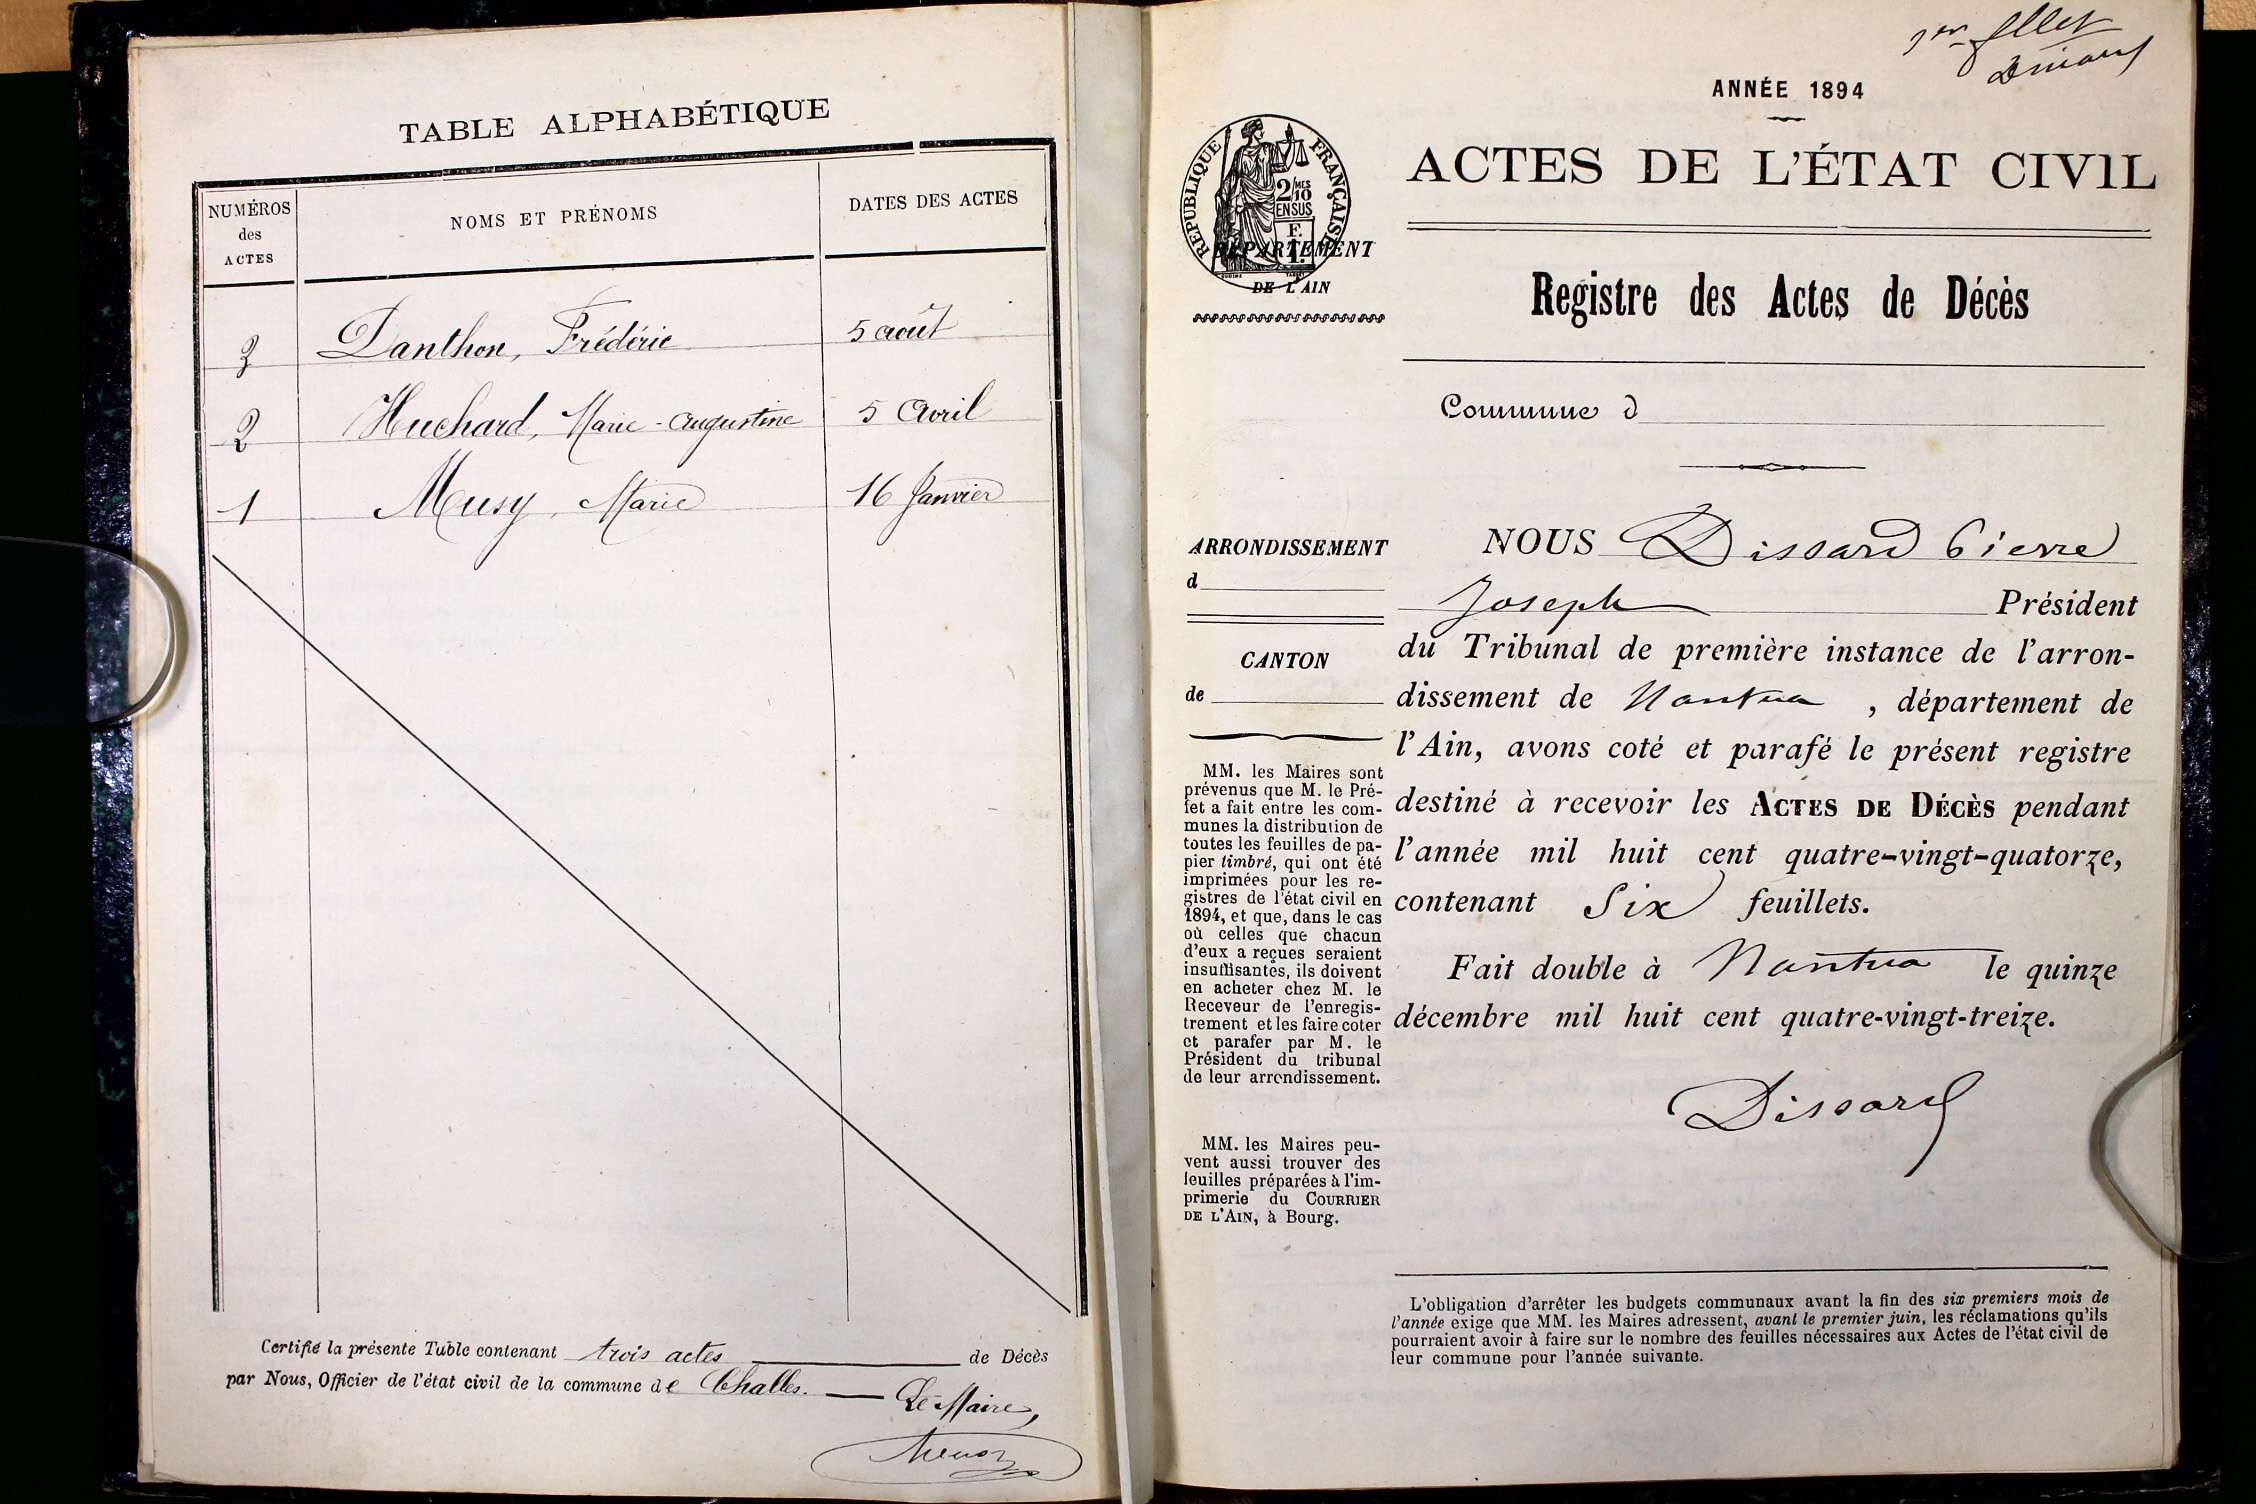 TABLE ALPHABÉTIQUE
NUMÉROS
des
ACTES
NOMS ET PRÉNOMS
DATES DES ACTES
3 Danthon, Frédéric 5 août
2 Huchard, Marie-Augustine 5 Avril
1 Musy, Marie 16 Janvier
Certifié la présente Table contenant trois actes de Décès
par Nous, Officier de l'état civil de la commune de Challes.
Le Maire,
1er fllet
ANNÉE 1894
RÉPUBLIQUE FRANÇAISE
2/10 MES
EN SUS
DÉPARTEMENT
DE L'AIN
ACTES DE L'ÉTAT CIVIL
Registre des Actes de Décès
Commune d
ARRONDISSEMENT
d
CANTON
de
MM. les Maires sont
prévenus que M. le Pré-
fet a fait entre les com-
munes la distribution de
toutes les feuilles de pa-
pier timbré, qui ont été
imprimées pour les re-
gistres de l'état civil en
1894, et que, dans le cas
où celles que chacun
d'eux a reçues seraient
insuffisantes, ils doivent
en acheter chez M. le
Receveur de l'enregis-
trement et les faire coter
et parafer par M. le
Président du tribunal
de leur arrondissement.
MM. les Maires peu-
vent aussi trouver des
feuilles préparées à l'im-
primerie du COURRIER
DE L'AIN, à Bourg.
NOUS Dissard Pierre
Joseph Président
du Tribunal de première instance de l'arron-
dissement de Nantua , département de
l'Ain, avons coté et parafé le présent registre
destiné à recevoir les ACTES DE DÉCÈS pendant
l'année mil huit cent quatre-vingt-quatorze,
contenant Six feuillets.
Fait double à Nantua le quinze
décembre mil huit cent quatre-vingt-treize.
Dissard
L'obligation d'arrêter les budgets communaux avant la fin des six premiers mois de
l'année exige que MM. les Maires adressent, avant le premier juin, les réclamations qu'ils
pourraient avoir à faire sur le nombre des feuilles nécessaires aux Actes de l'état civil de
leur commune pour l'année suivante.